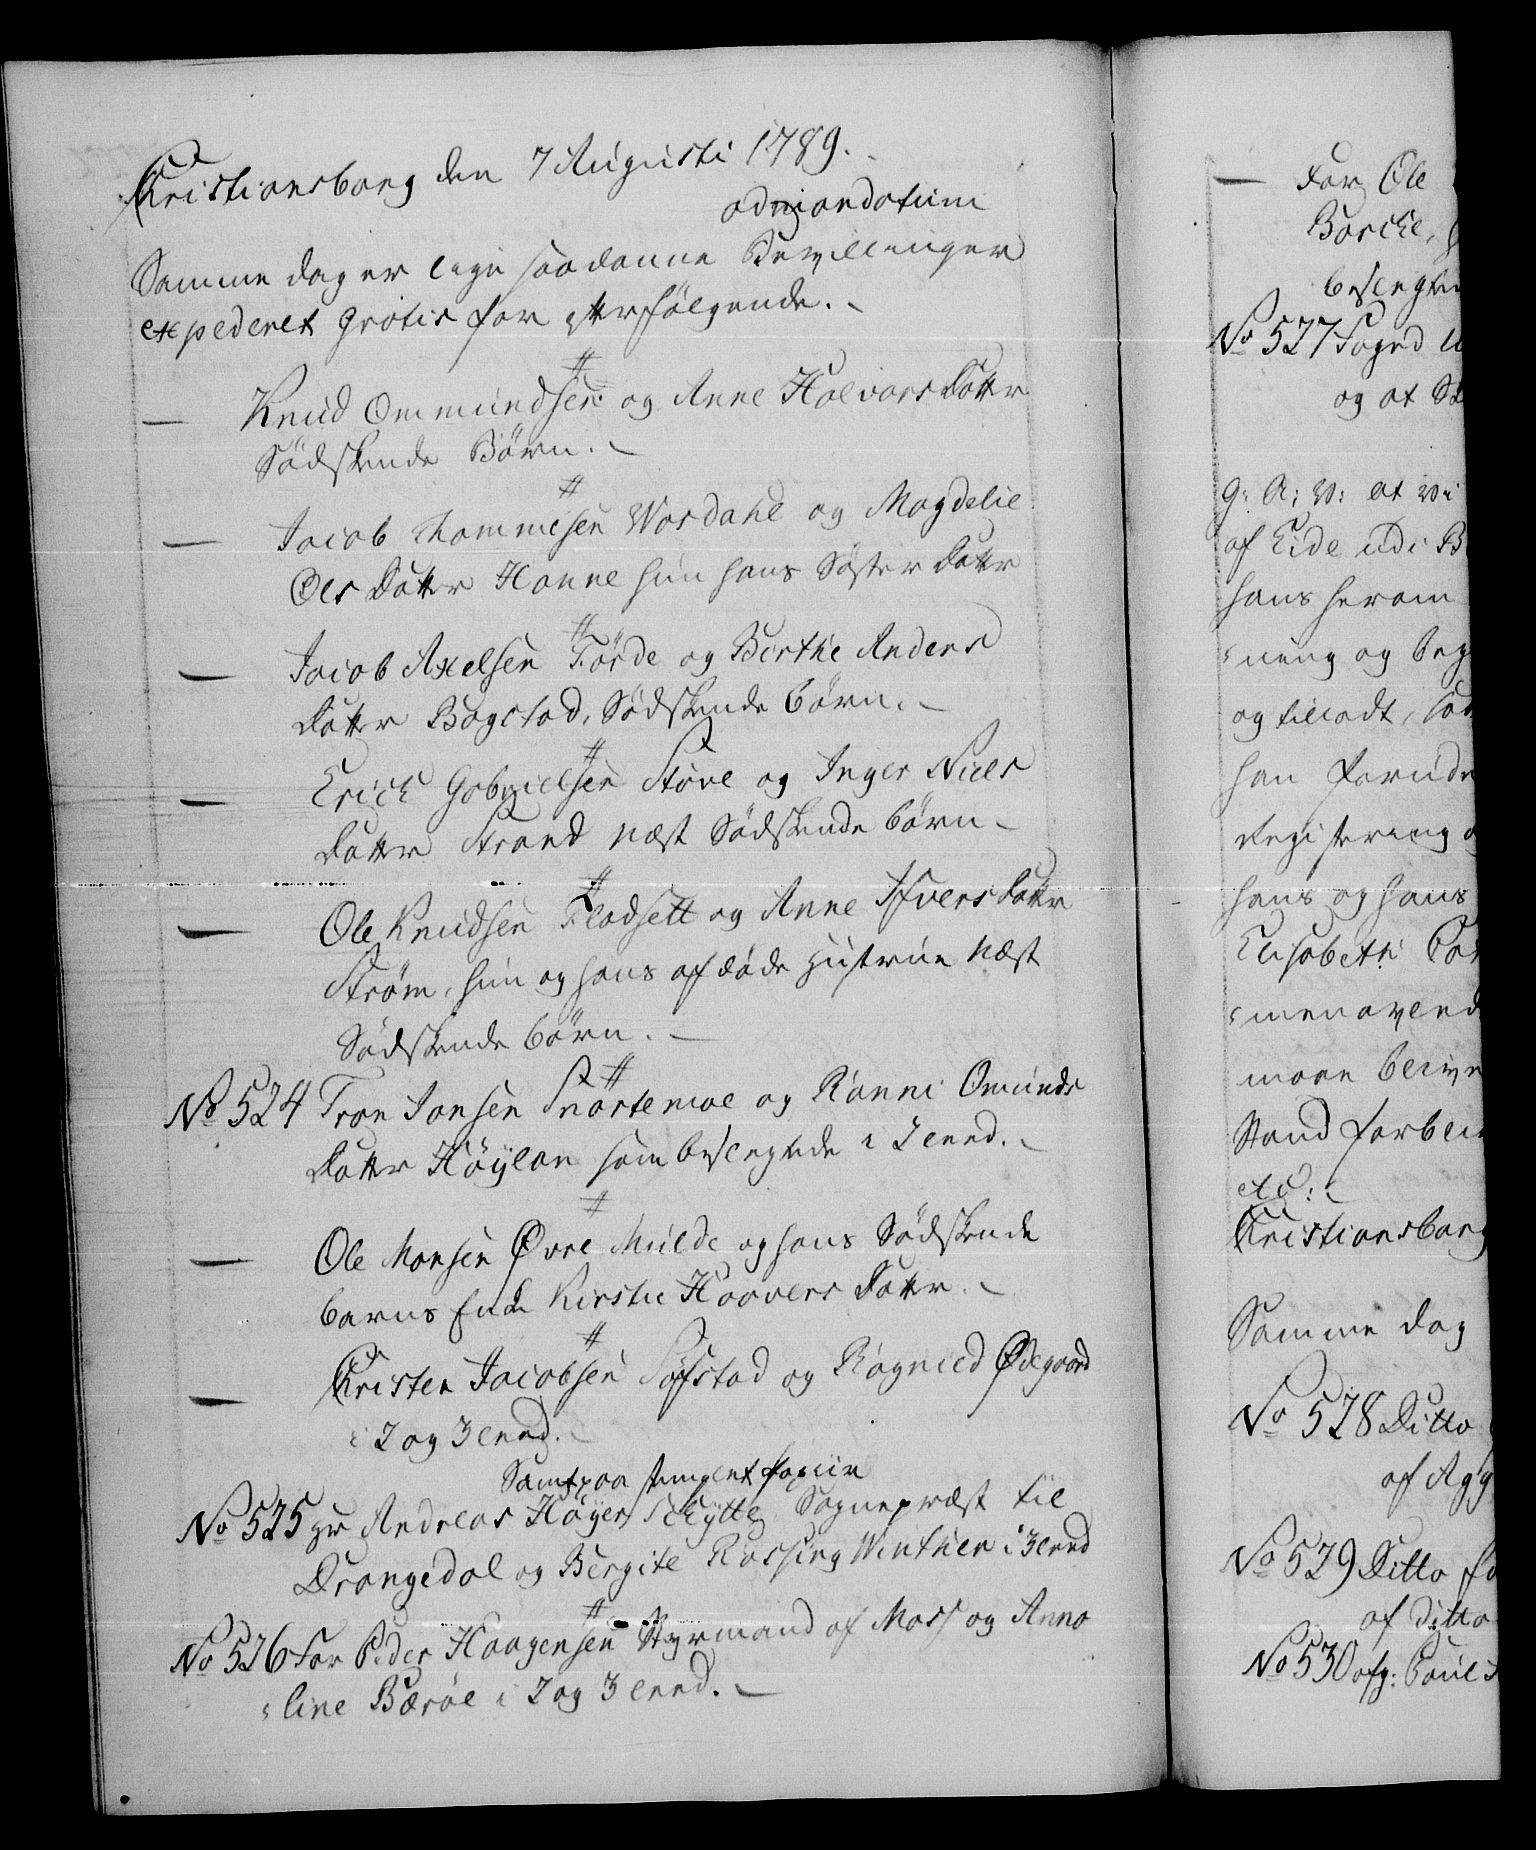 Christiansborg den 7 Augusti 1789.
ad mandatum
Samme dag er lige saadanne Bevillinger
expederet gratis for efterfølgende.
Knud Ommundsen og Anne Halvorsdatter
Södskende Börn.
Jacob Thommesen Wordahl og Magdelie
Olsdatter Hanne hun hans Söster datter
Jacob Axelsen Förde og Birthe Anders
datter Bogstad, Södskende börn.
Erich Gabrielsen Støve og Inger Niels
datter Strand næst Södskende börn
Ole Knudsen Flodsett og Anne Ifversdatter
Strøm, hun og hans afdöde Hustrue næst
Södskende börn.
No 524 Tron Jonsen Snartemoe og Ranni Omunds
datter Höyland som beslegtede i 2 leed.
Ole Monsen Øvre Milde og hans Södskende
barns Enke Kirstie Haavers datter.
Christen Jacobsen Søfstad og Ragnild Ødegaard
i 2 og 3 leed.
Samt paa stemplet Papiir
No 525 Hr Andreas Höyer Schytte Sognepræst til
Drangedal og Birgite Rossing Winther i 3 leed
No 526 For Peder Haagensen Styrmand af Moss og Anna
line Bærøe i 2 og 3 leed.
For Ole
beslegted
No 527 Foged
og at
G: A: V: at vi
af Eide udi B
hans herom
ning og beg
og tilladt, saa
han foruden
Registering
hans og hans
Elisabeth
menavend
maae blive
Stand forbli
etc:
Christiansborg
Samme dag
No 528 Ditto
af Agg
No 529 Ditto fo
af ditto
No 530 afg: Poul